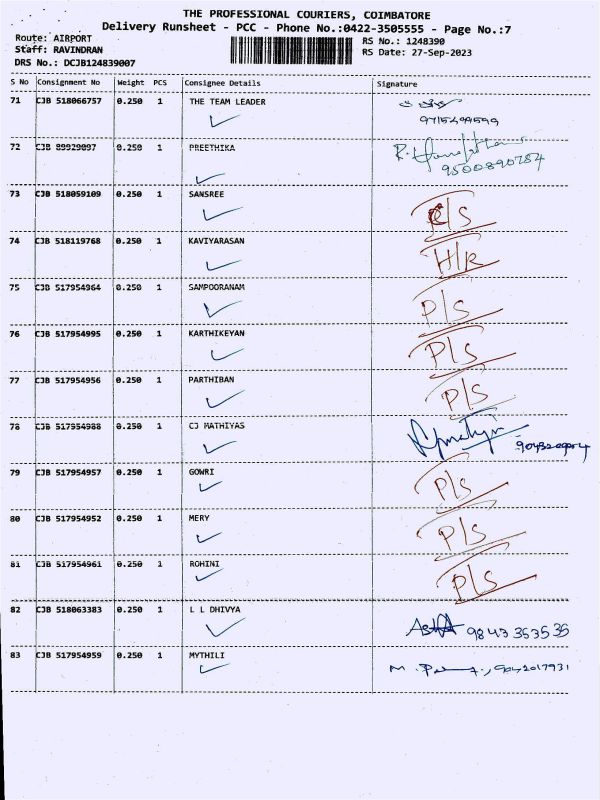 THE PROFESSIONAL COURIERS, COIMBATORE
Delivery Runsheet - PCC - Phone No.:0422-3505555 - Page No.:7
Route: AIRPORT RS No.: 1248390
Staff: RAVINDRAN RS Date: 27-Sep-2023
DRS No.: DCJB124839007
S No Consignment No Weight PCS Consignee Details Signature
71 CJB 518066757 0.250 1 THE TEAM LEADER
9715499599
72 CJB 89929097 0.250 1 PREETHIKA
9500890784
73 CJB 518059109 0.250 1 SANSREE P/S
74 CJB 518119768 0.250 1 KAVIYARASAN H/R
75 CJB 517954964 0.250 1 SAMPOORANAM P/S
76 CJB 517954995 0.250 1 KARTHIKEYAN P/S
77 CJB 517954956 0.250 1 PARTHIBAN P/S
78 CJB 517954988 0.250 1 CJ MATHIYAS
79 CJB 517954957 0.250 1 GOWRI P/S
80 CJB 517954952 0.250 1 MERY P/S
81 CJB 517954961 0.250 1 ROHINI P/S
82 CJB 518063383 0.250 1 L L DHIVYA 9843353535
83 CJB 517954959 0.250 1 MYTHILI M. 9042017931